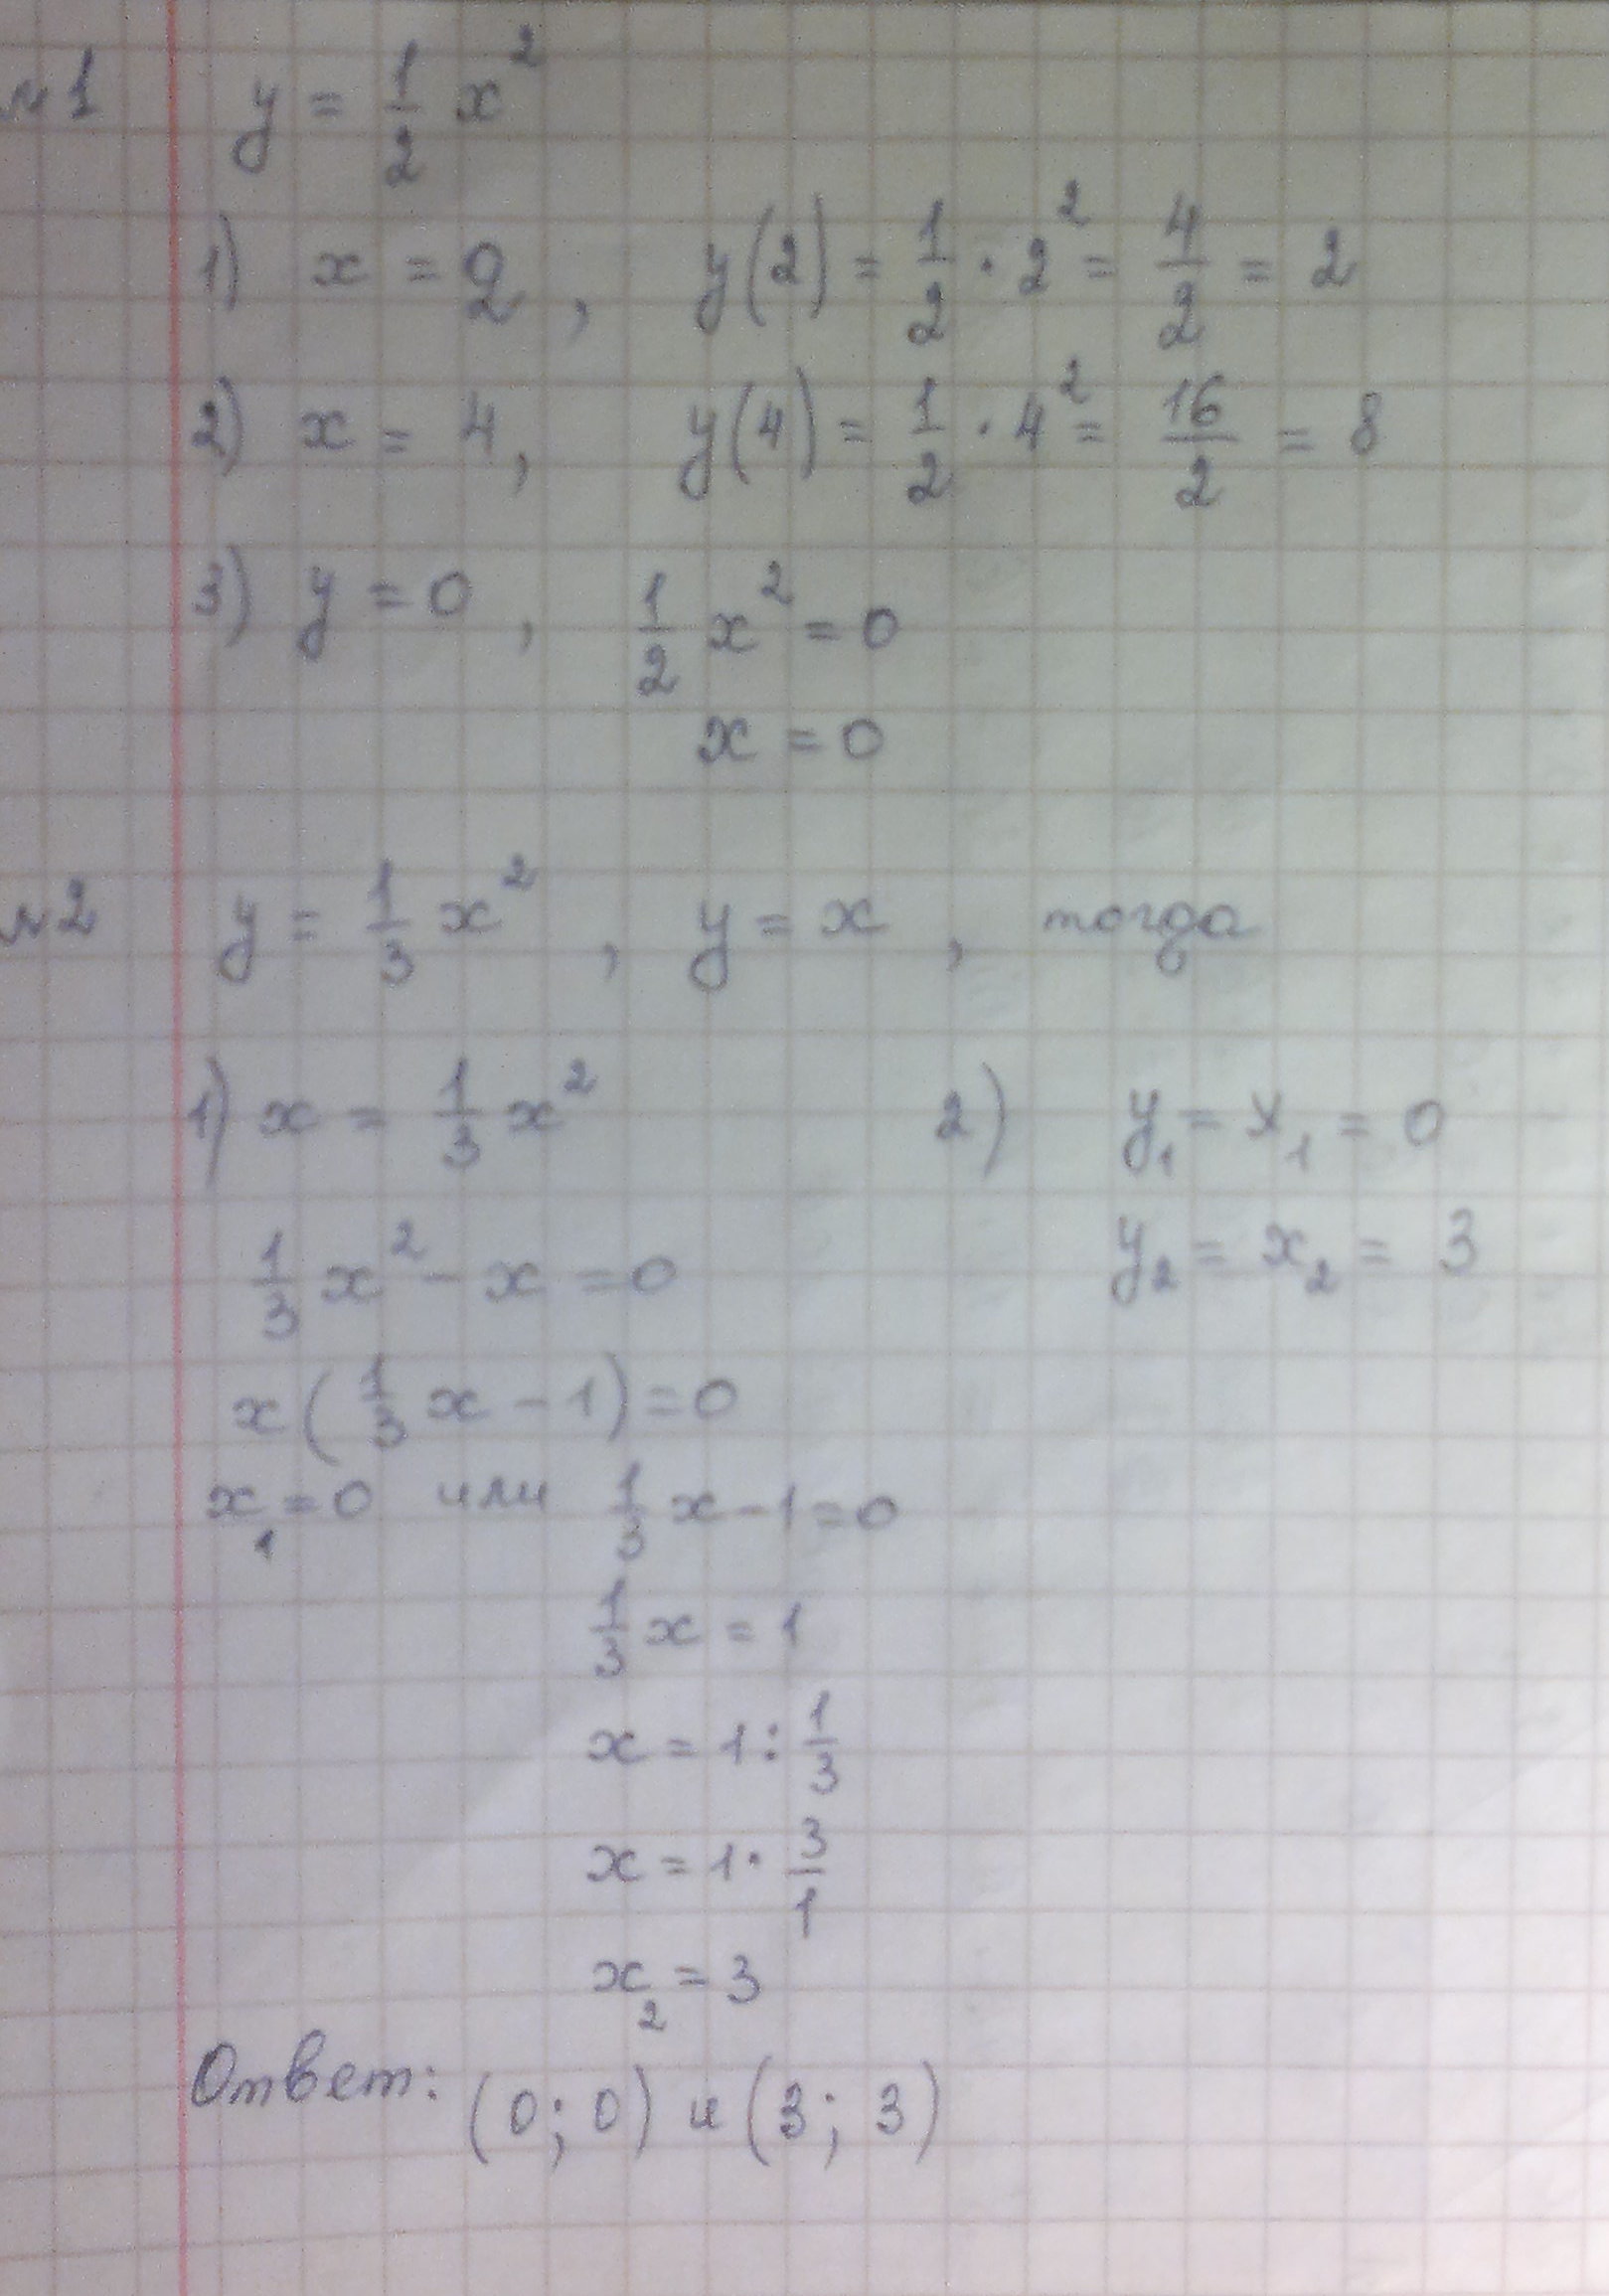 №1 y = 1/2 x²
1) x = 2, y(2) = 1/2 · 2² = 4/2 = 2
2) x = 4, y(4) = 1/2 · 4² = 16/2 = 8
3) y = 0, 1/2 x² = 0
x = 0
№2 y = 1/3 x², y = x, тогда
1) x = 1/3 x² 2) y₁ = x₁ = 0
1/3 x² - x = 0 y₂ = x₂ = 3
x(1/3 x - 1) = 0
x₁ = 0 или 1/3 x - 1 = 0
1/3 x = 1
x = 1 : 1/3
x = 1 · 3/1
x₂ = 3
Ответ: (0; 0) и (3; 3)